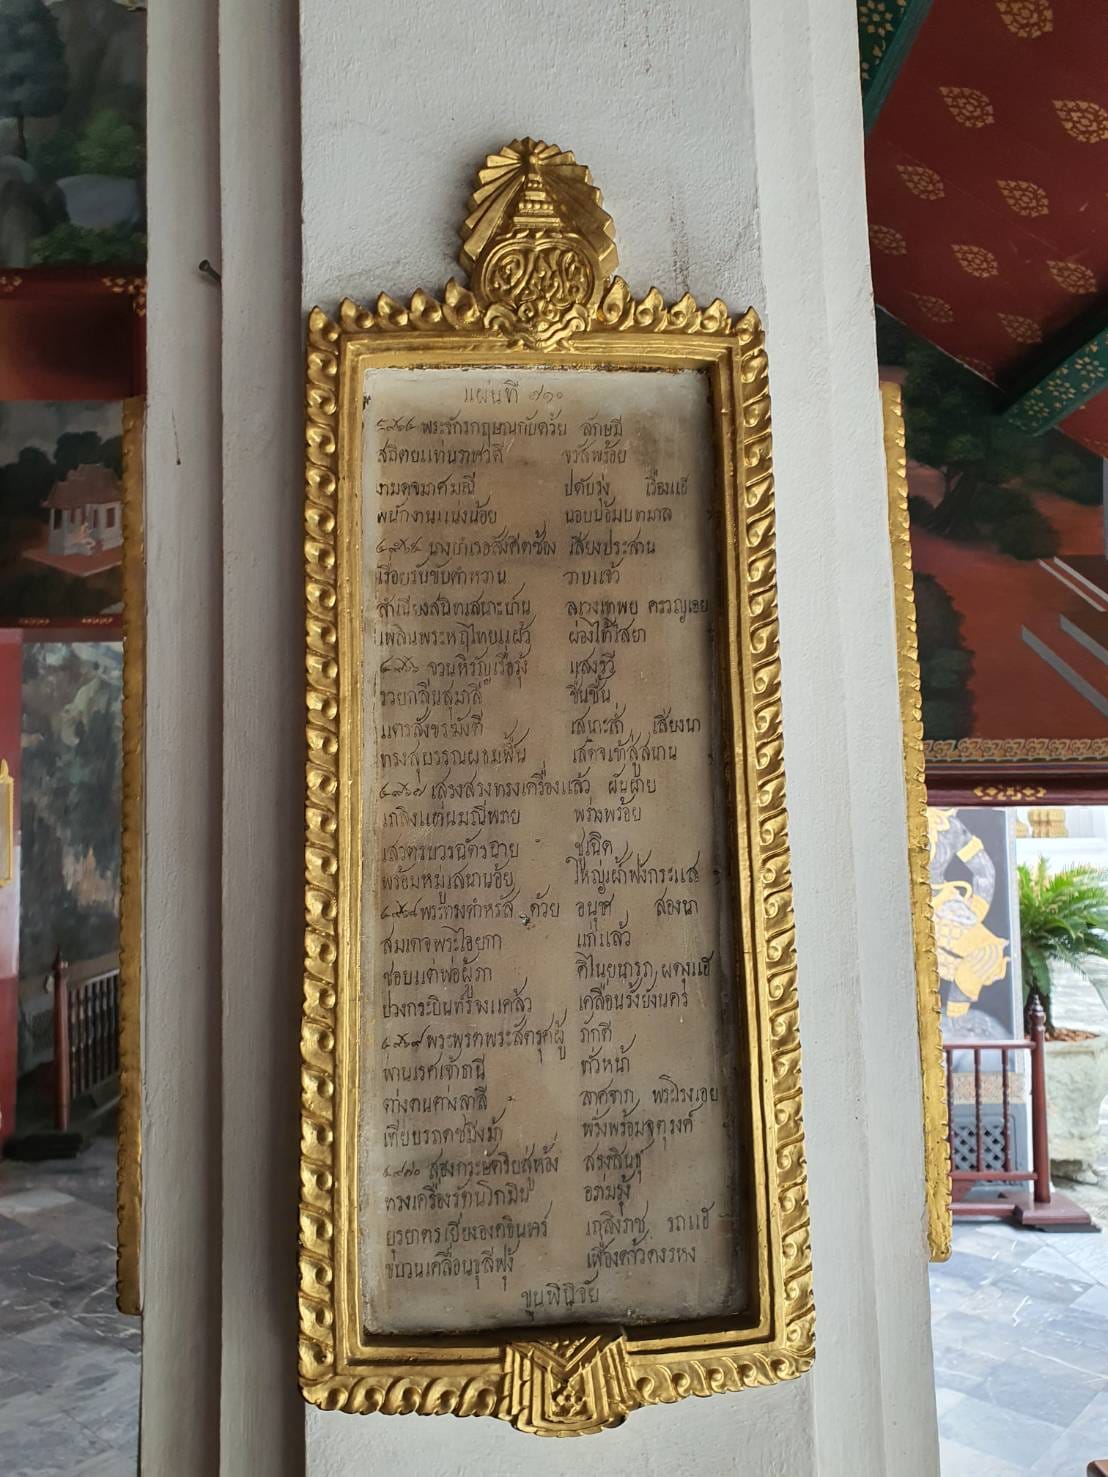 แผ่นที่ ๗๑๐
พระจักรกฤษณกับด้วย ลักษมี
จรัสพร้อย
ปดับรุ่ง เรืองแฮ
พนักงานแน่งน้อย นอบน้อม
๔๙๖๕ นางบำเรอสังคีตซ้อง เสียงประสาน
เรื่อยรับขับคำหวาน วาบแจ้ว
สำเนียงสนิทเสนาะปาน ครวญเอย
เพลินพระหฤไทยแผ้ว ผ่องไท้ไสยา
๔๙๖๖ จวนหิรัญเรื่อรุ้ง แสงรวี
รวยกลิ่นสุมาลี ชื่นชั้น
แตรสังข เสนาะล้ำ เสียงนา
ทรงสุบรรณผธมฟื้น เสด็จเข้าสู่สนาน
๔๙๖๗ เสรจสรงทรงเครื่องแล้ว ผันผาย
เถลิงแท่นมณีพราย พร่างพร้อย
เสวตรบวรฉัตรฉาย ชูเฉิด
พร้อมหมู่เสนาน้อย ใหญ่เฝ้าฟังกระแส
๔๙๖๘ พระทรงดำหรัส ด้วย อนุชา สองนา
สมเดจพระไอยกา แก่แล้ว
ชอบแต่พ่อผู้ภา
ปวงกระบินทร์จงแคล้ว เคลื่อนรั้งยังนคร
๔๙๖๙ พระพรตพระสัตรุศผู้ ภักดี
ผ่านเรศเจ้าธานี ทั้วหน้า
ต่างตนต่างลาลี ลาศจาก
เทียบรถคชปิงม้า พรั่งพร้อมจตุรงค์
๔๙๗๐ สององกระษัตริยสู่ห้อง สรงสินธุ
ทรงเครื่องรัตน
ยุรยาตรเยี่ยงองคอินทร์ เถลิงราช รถแฮ
ขบวนเคลื่อนธุลีฟุ้ง เฟื่องคว้าง
ขุนพินิจัย